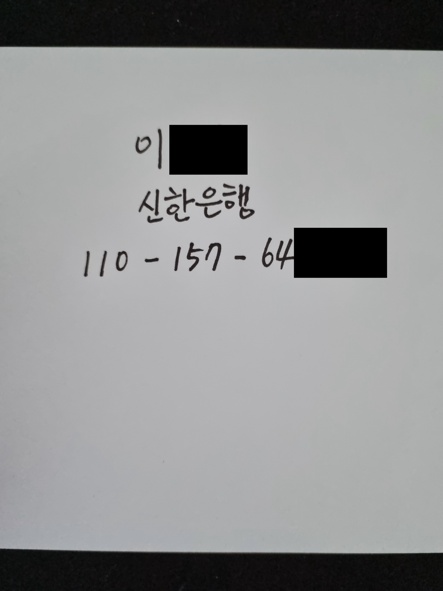 이
신한은행
110 - 157 - 64